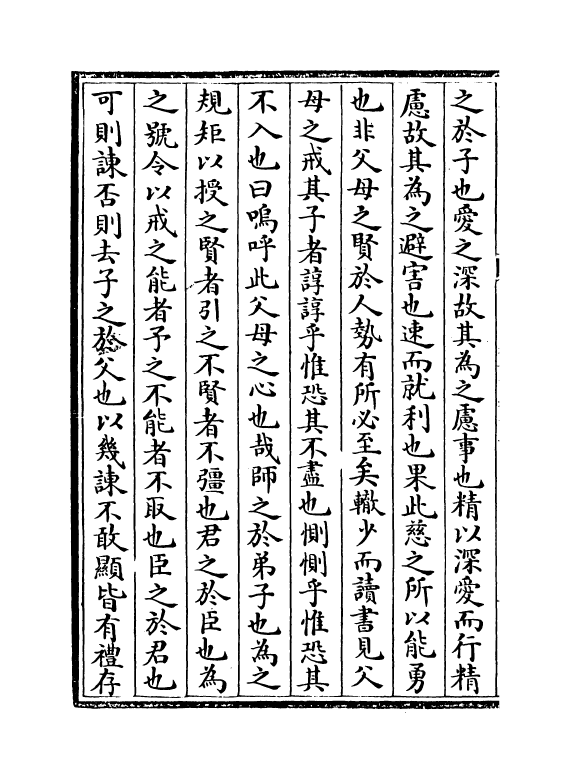 之於子也愛之深故其為之慮事也精以深愛而行精
慮故其為之避害也速而就利也果此慈之所以能勇
也非父母之賢於人勢有所必至矣轍少而讀書見父
母之戒其子者諄諄乎惟恐其不盡也惻惻乎惟恐其
不入也曰嗚呼此父母之心也哉師之於弟子也為之
規矩以授之賢者引之不賢者不彊也君之於臣也為
之號令以戒之能者予之不能者不取也臣之於君也
可則諫否則去子之於父也以幾諫不敢顯皆有禮存